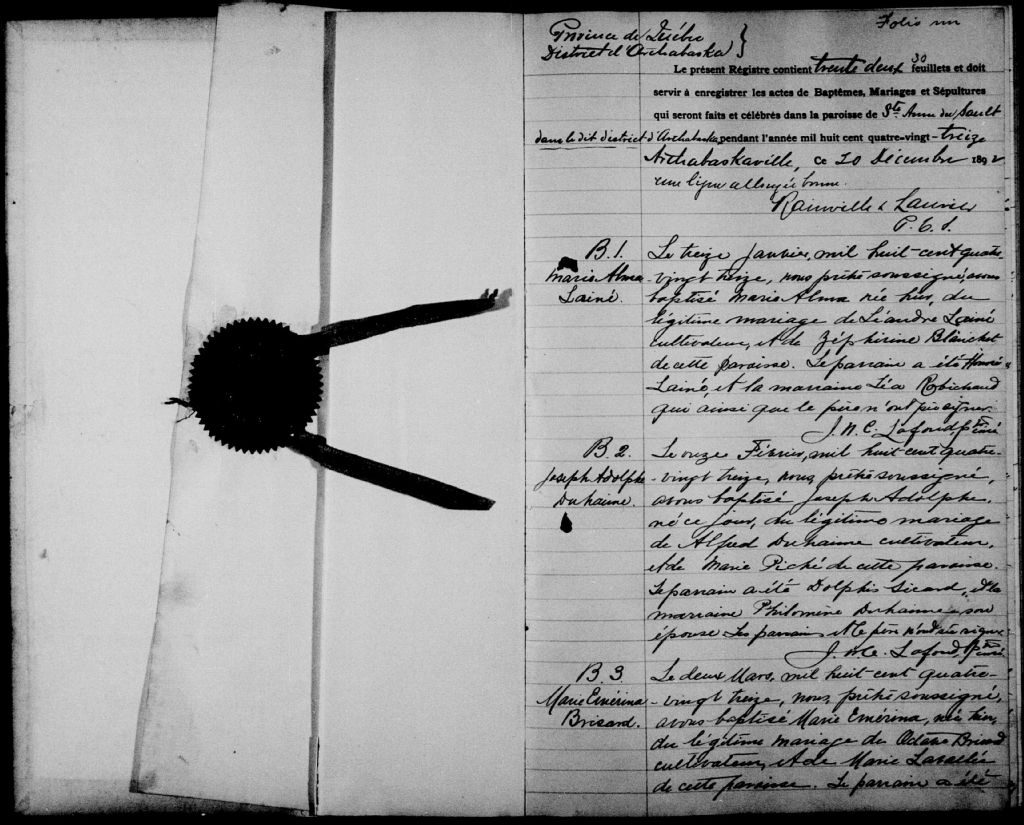 Folio un
Province de Québec
District d'Arthabaska }
Le présent Régistre contient trente deux 30 feuillets et doit
servir à enregistrer les actes de Baptêmes, Mariages et Sépultures
qui seront faits et célébrés dans la paroisse de Ste Anne du Sault
dans le dit district d'Arthabaska pendant l'année mil huit cent quatre-vingt-treize
Arthabaskaville, Ce 20 Décembre 1892
une ligne allongée bonne.
Rainville & Laurier
P. C. S.
B. 1
Marie Alma
Lainé.
Le treize Janvier, mil huit-cent quatre-
vingt treize, nous prêtre soussigné, avons
baptisé Marie Alma née hier, du
légitime mariage de Léandre Lainé
cultivateur, et de Zéphirine Blanchet
de cette paroisse. Le parrain a été Honoré
Lainé, et la marraine Léa Robichaud
qui ainsi que le père n'ont pu signer.
J. N. C. Lafond Ptre curé
B. 2.
Joseph Adolphe
Duhaime.
Le onze Février, mil huit cent quatre-
vingt treize, nous, prêtre soussigné,
avons baptisé Joseph Adolphe,
né ce jour, du légitime mariage
de Alfred Duhaime cultivateur,
et de Marie Piché de cette paroisse.
Le parrain a été Dolphis Sicard, et la
marraine Philomène Duhaime, son
épouse. Les parrains et le père n'ont su signer
J. N. C. Lafond, Ptre curé.
B. 3.
Marie Emérina
Brisard.
Le deux Mars, mil huit-cent quatre-
vingt treize, nous, prêtre soussigné,
avons baptisé Marie Emérina, née hier,
du légitime mariage de Octave Brisard
cultivateur, et de Marie Lavallée
de cette paroisse. Le parrain a été